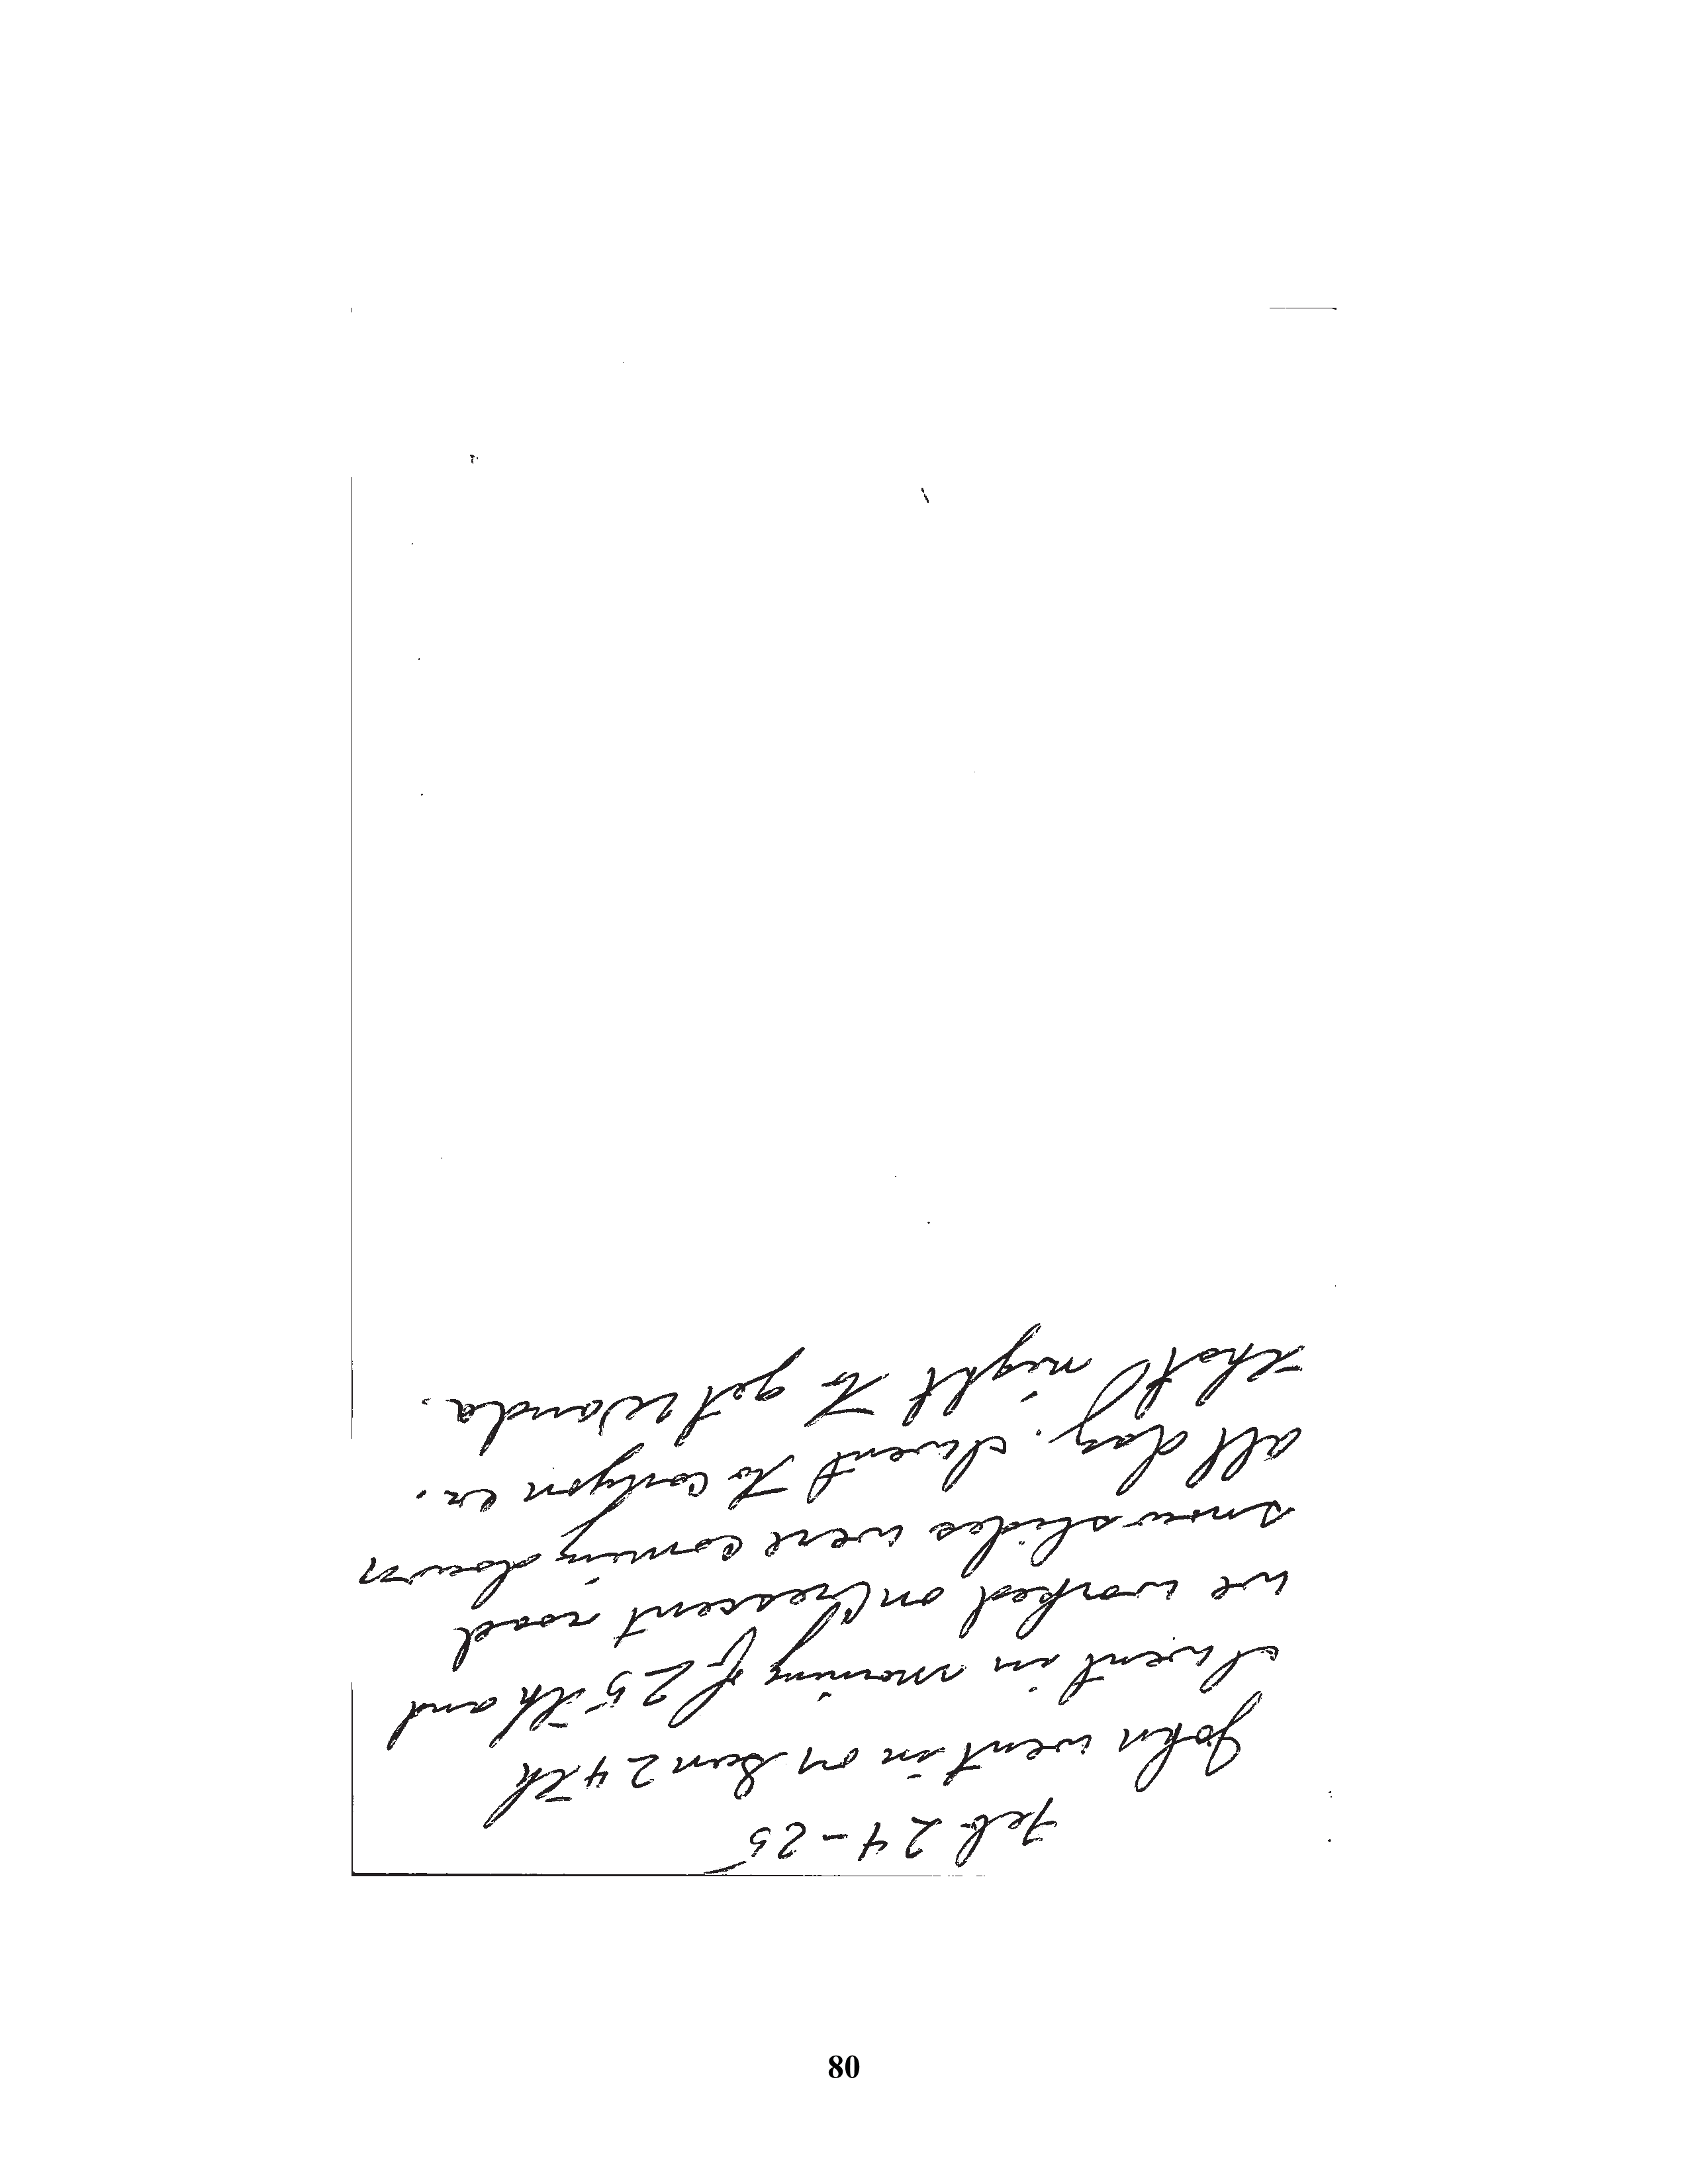 Feb 24-25
John went in on Sun 24th
I went in morning of 25th and
we worked on Crescent road
snow slides were coming down
all day. I went to Canyon cr.
that night to get Wanda.
80